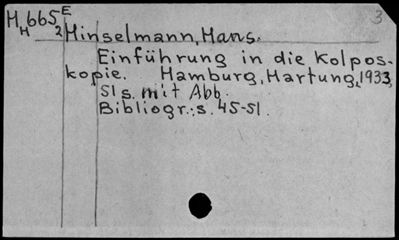 3
H,665E
H 2 Hinselmann, Hans.
Einführung in die Kolpos-
kopie. Hamburg, Hartung, 1933,
51 s. mit Abb.
Bibliogr.: s. 45-51.